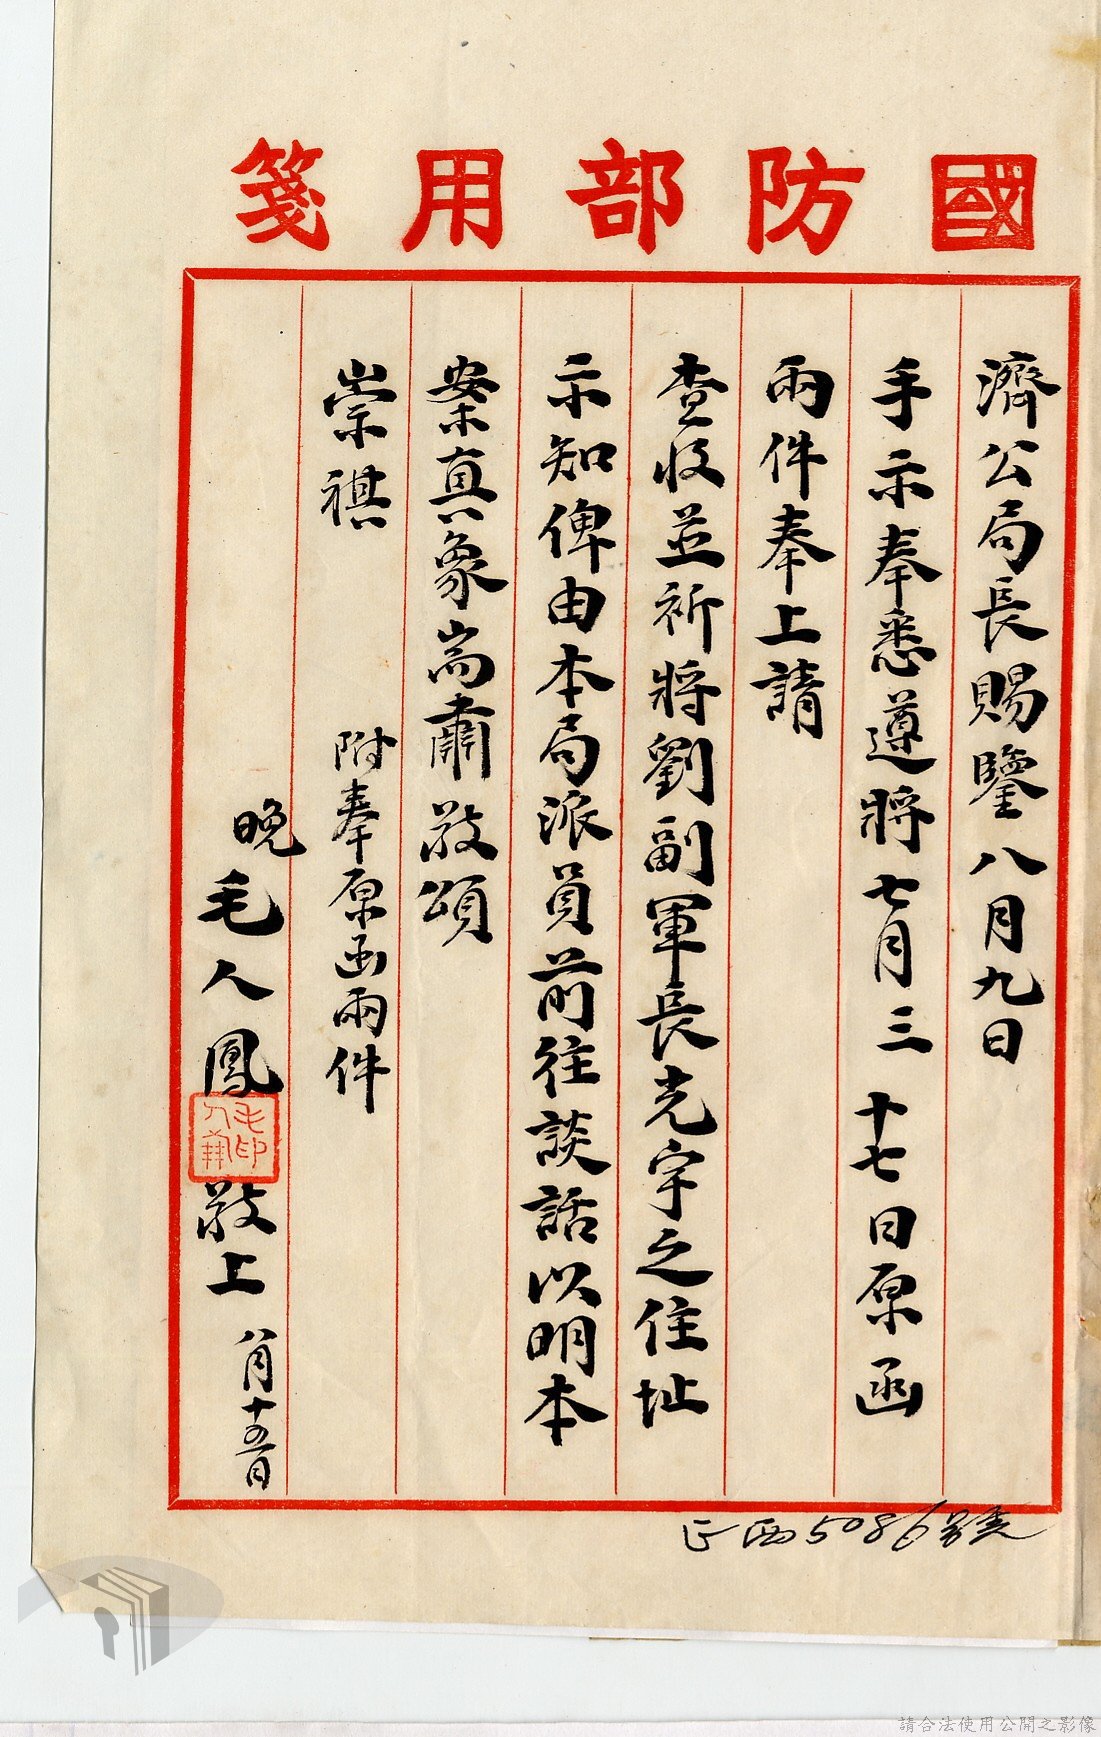 國防部用箋
濟公局長賜鑒八月九日
手示奉悉遵將七月三十七日原函
兩件奉上請
查收並祈將劉副軍長光宇之住址
示知俾由本局派員前往談話以明本
案真象耑肅敬頌
崇祺
附奉原函兩件
晚毛人鳳敬上 八月十五日
毛人鳳印
正西5086號
請合法使用公開之影像